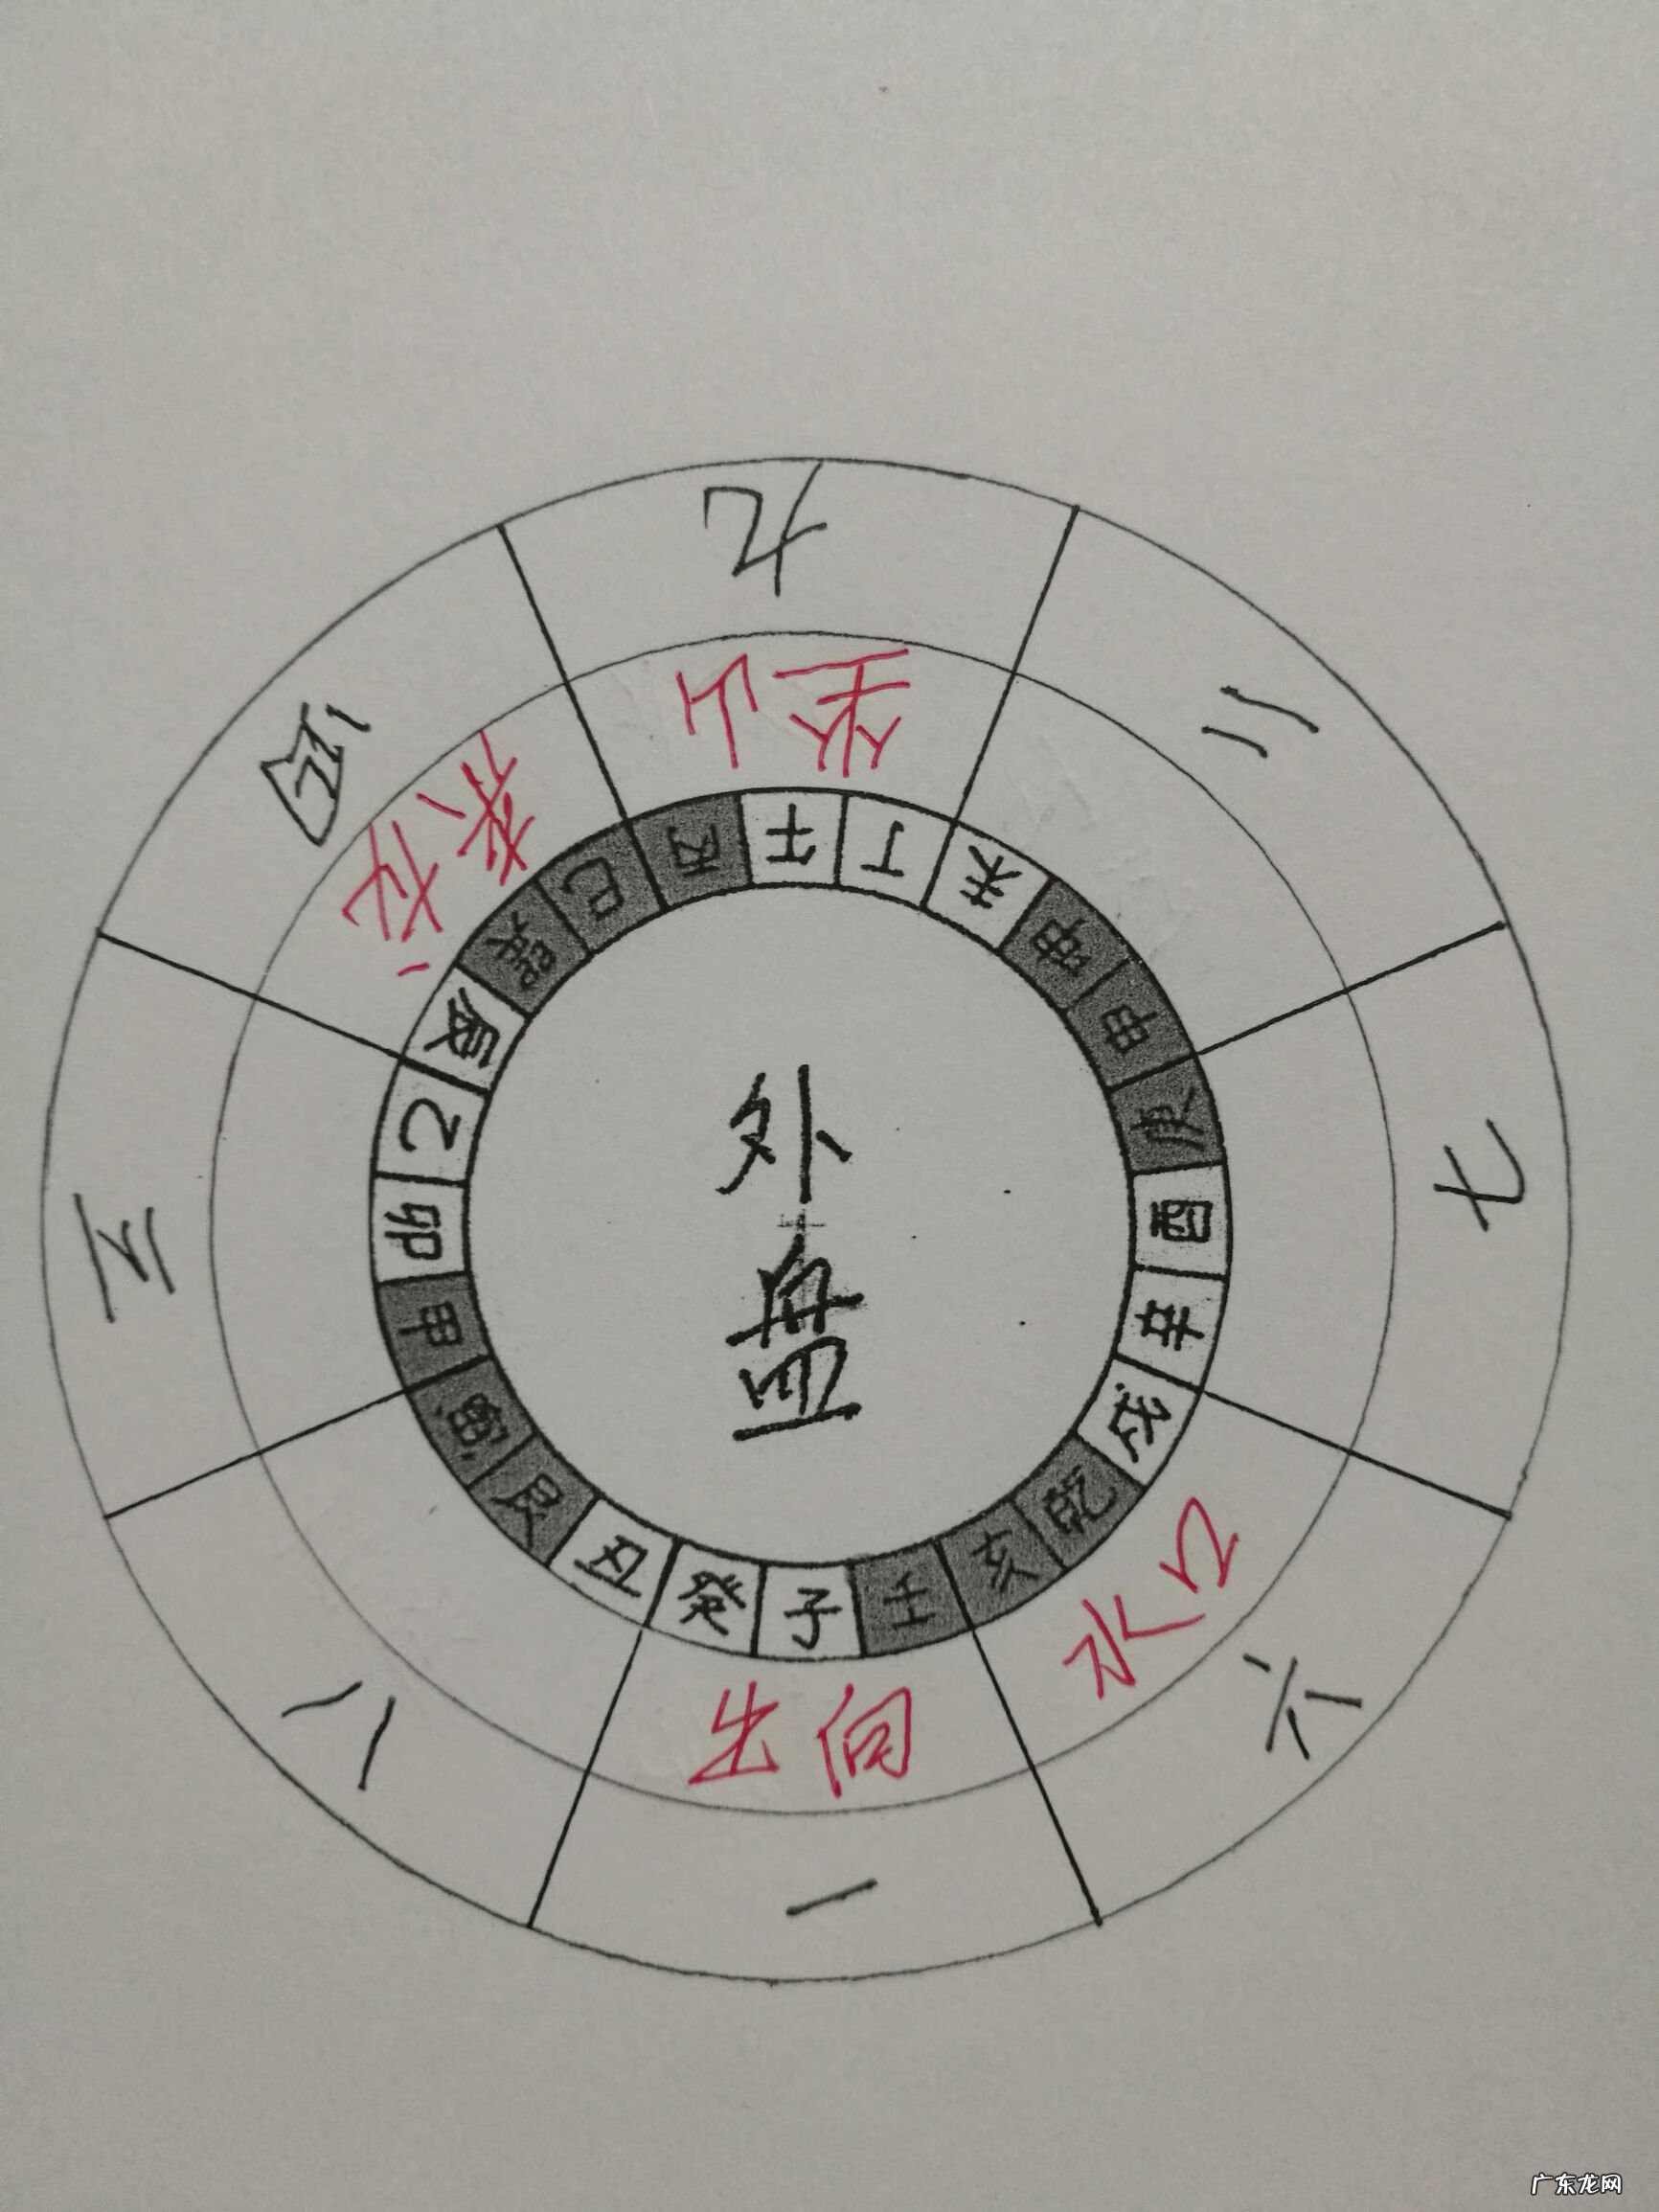 外盘
九
二
七
六
一
八
三
四
坐山
水口
出向
来龙
午
丁
未
坤
申
庚
酉
辛
戌
乾
亥
壬
子
癸
丑
艮
寅
甲
卯
乙
辰
巽
巳
丙
广东龙网